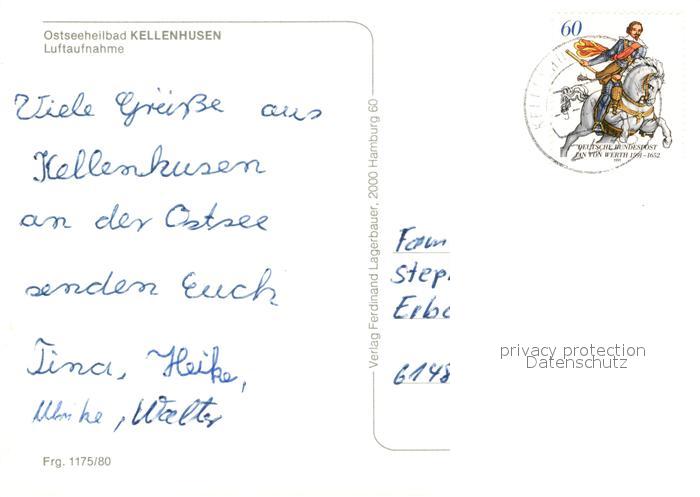 Ostseeheilbad KELLENHUSEN
Luftaufnahme
Viele Grüße aus
Kellenhusen
an der Ostsee
senden Euch
Tina, Heike,
Ulrike, Walter
Frg. 1175/80
Verlag Ferdinand Lagerbauer, 2000 Hamburg 60
60
DEUTSCHE BUNDESPOST
JAN VON WERTH 1591-1652
Fam
Step
Erba
6148
privacy protection
Datenschutz